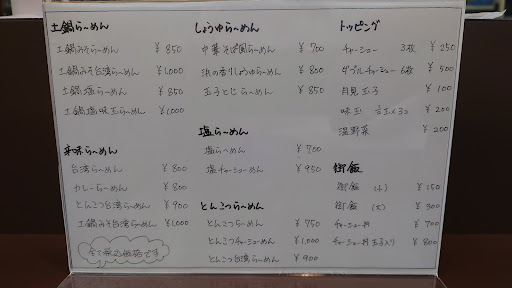 土鍋らーめん
土鍋みそらーめん ¥850
土鍋みそ台湾らーめん ¥1,000
土鍋塩らーめん ¥850
土鍋塩味玉らーめん ¥1,000
辛味らーめん
台湾らーめん ¥800
カレーらーめん ¥800
とんこつ台湾らーめん ¥900
土鍋みそ台湾らーめん ¥1,000
全て税込価格です
しょうゆらーめん
中華そば風らーめん ¥700
浜の香りしょうゆらーめん ¥800
玉子とじらーめん ¥850
塩らーめん
塩らーめん ¥700
塩チャーシューめん ¥950
とんこつらーめん
とんこつらーめん ¥750
とんこつチャーシューめん ¥1,000
とんこつ台湾らーめん ¥900
トッピング
チャーシュー 3枚 ¥250
ダブルチャーシュー 6枚 ¥500
月見玉子 ¥100
味玉 ¥200
温野菜 ¥200
御飯
御飯 (小) ¥150
御飯 (大) ¥300
チャーシュー丼 ¥700
チャーシュー丼玉子入り ¥800